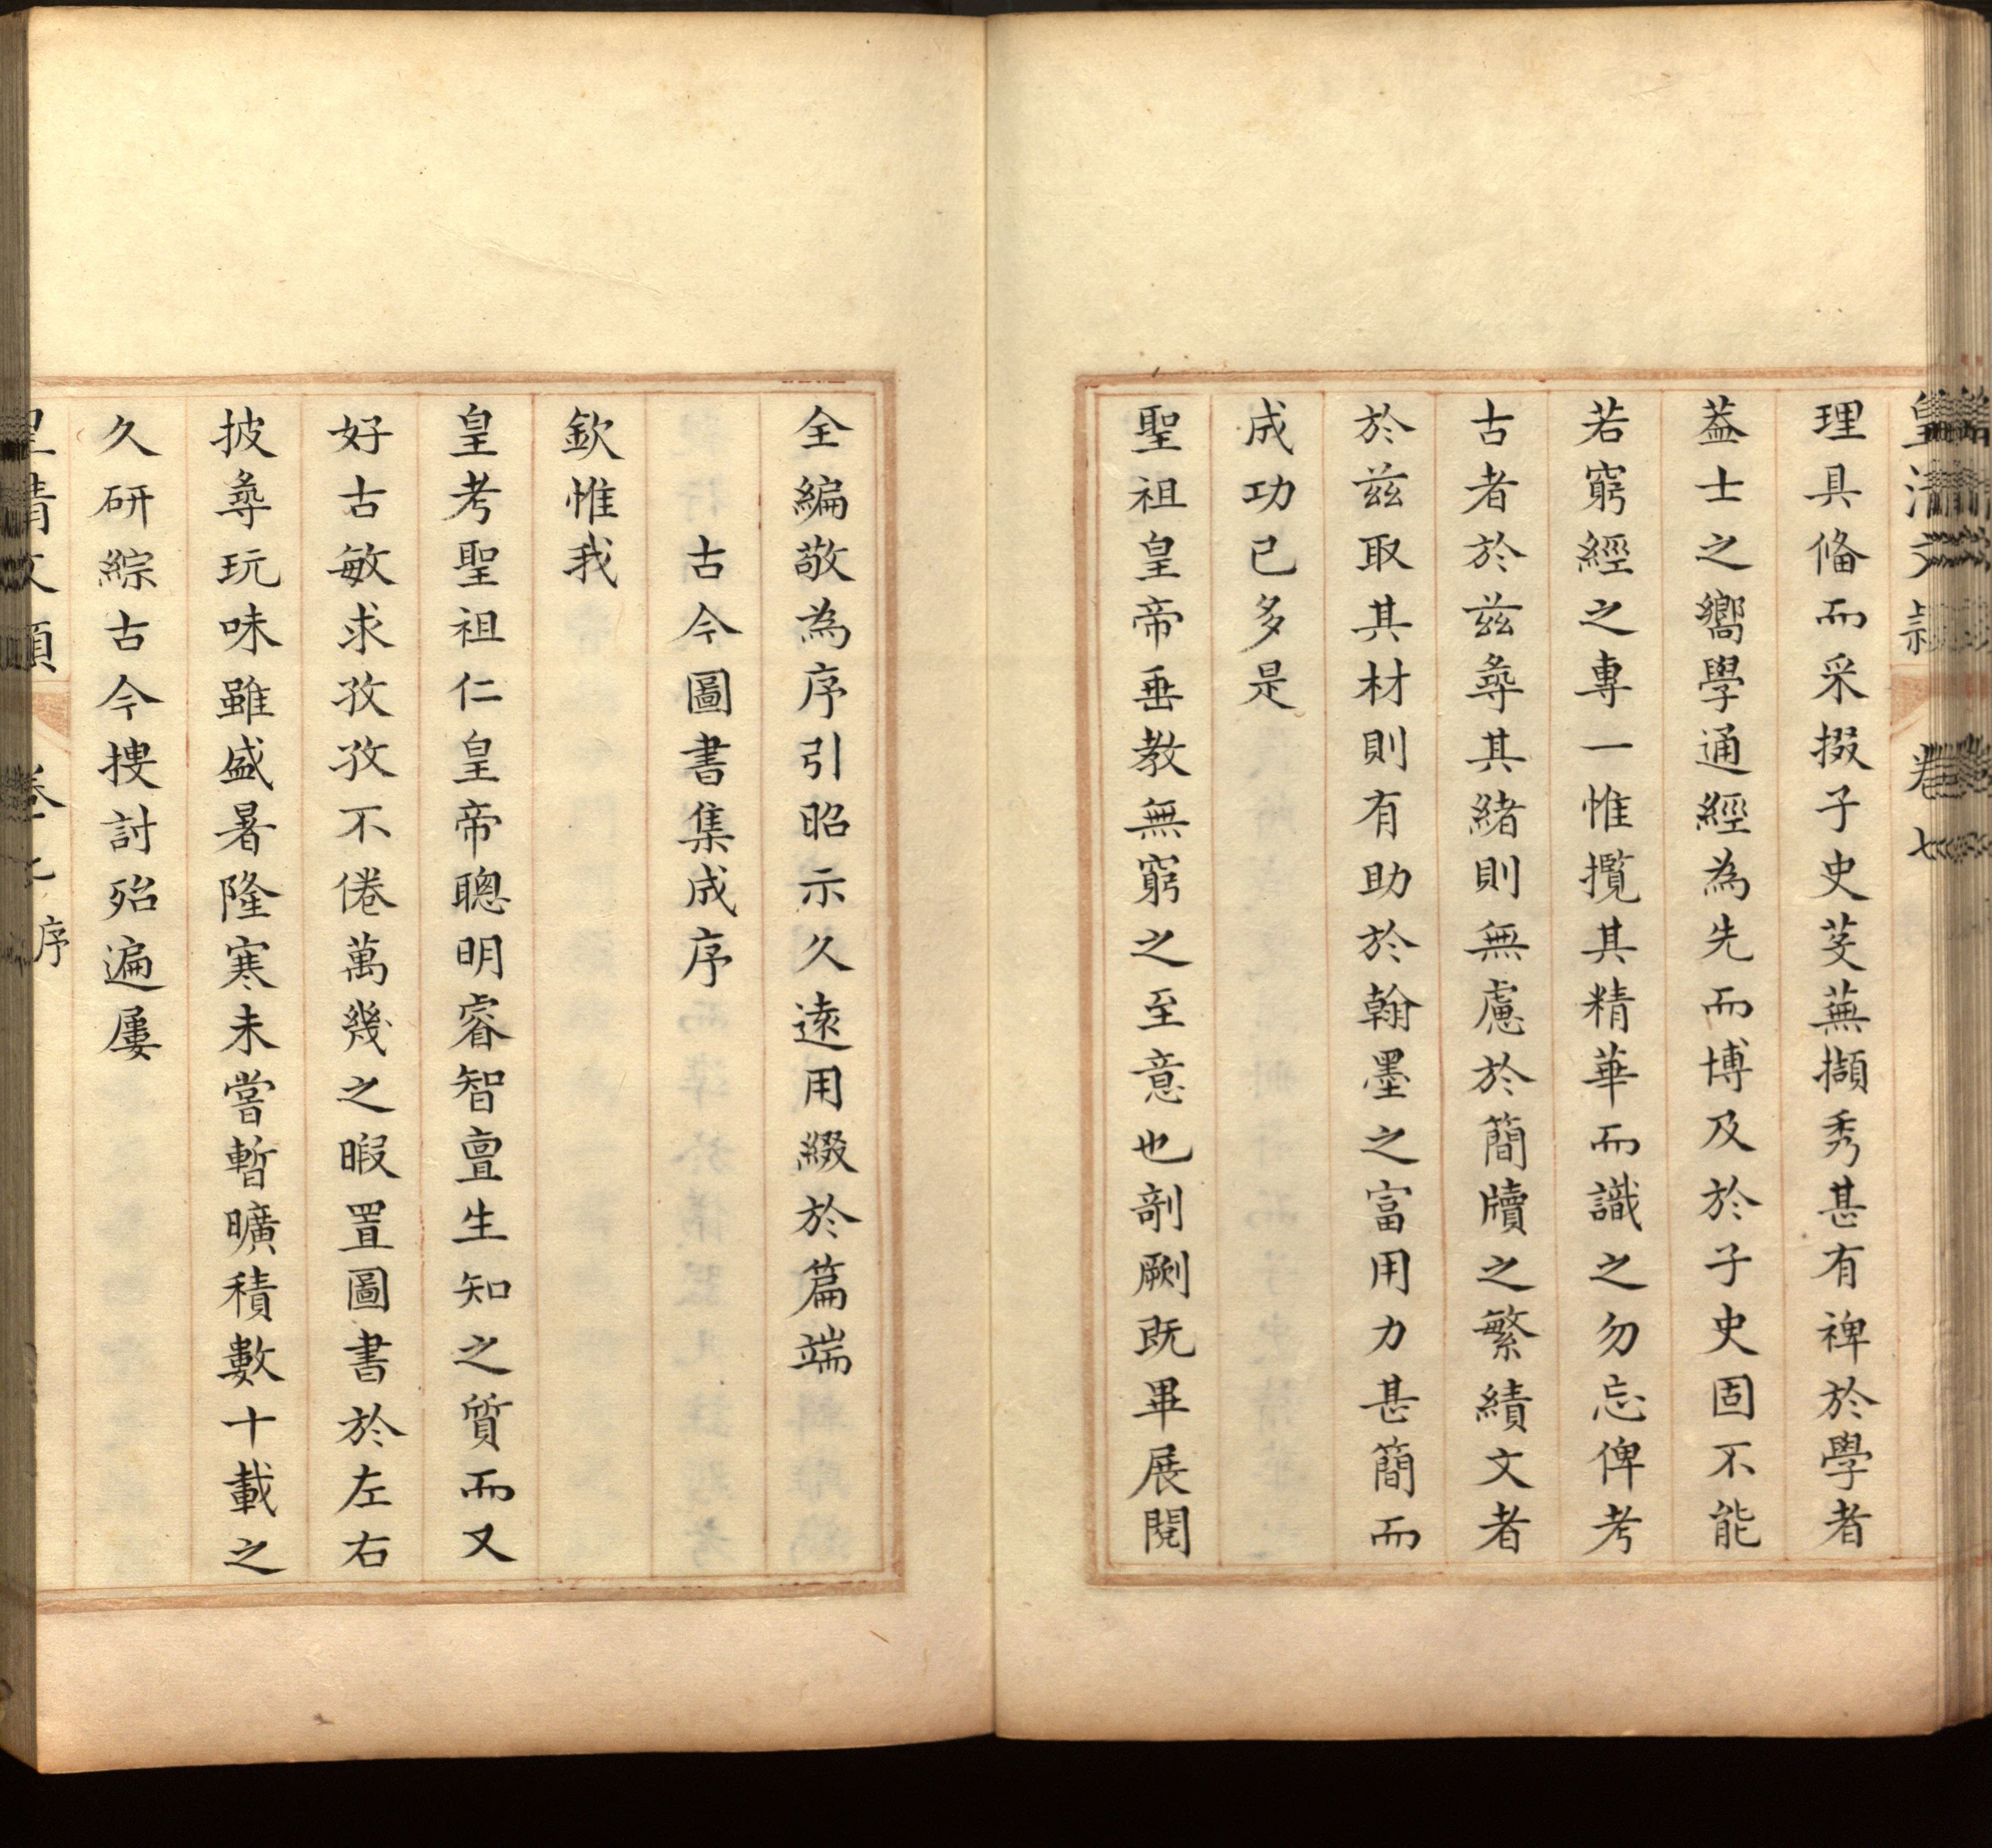 皇清文穎 卷七
理具俻而采掇子史芟蕪擷秀甚有裨於學者
葢士之嚮學通經為先而博及於子史固不能
若窮經之專一惟攬其精華而識之勿忘俾考
古者於兹尋其緒則無慮於簡牘之繁績文者
於兹取其材則有助於翰墨之富用力甚簡而
成功已多是
聖祖皇帝垂教無窮之至意也剞劂既畢展閱
全編敬為序引昭示久逺用綴於篇端
古今圖書集成序
欽惟我
皇考聖祖仁皇帝聰明睿智亶生知之質而又
好古敏求孜孜不倦萬幾之暇置圖書於左右
披尋玩味雖盛暑隆寒未嘗暫曠積數十載之
久研綜古今搜討殆遍屢
皇清文穎 卷七 序